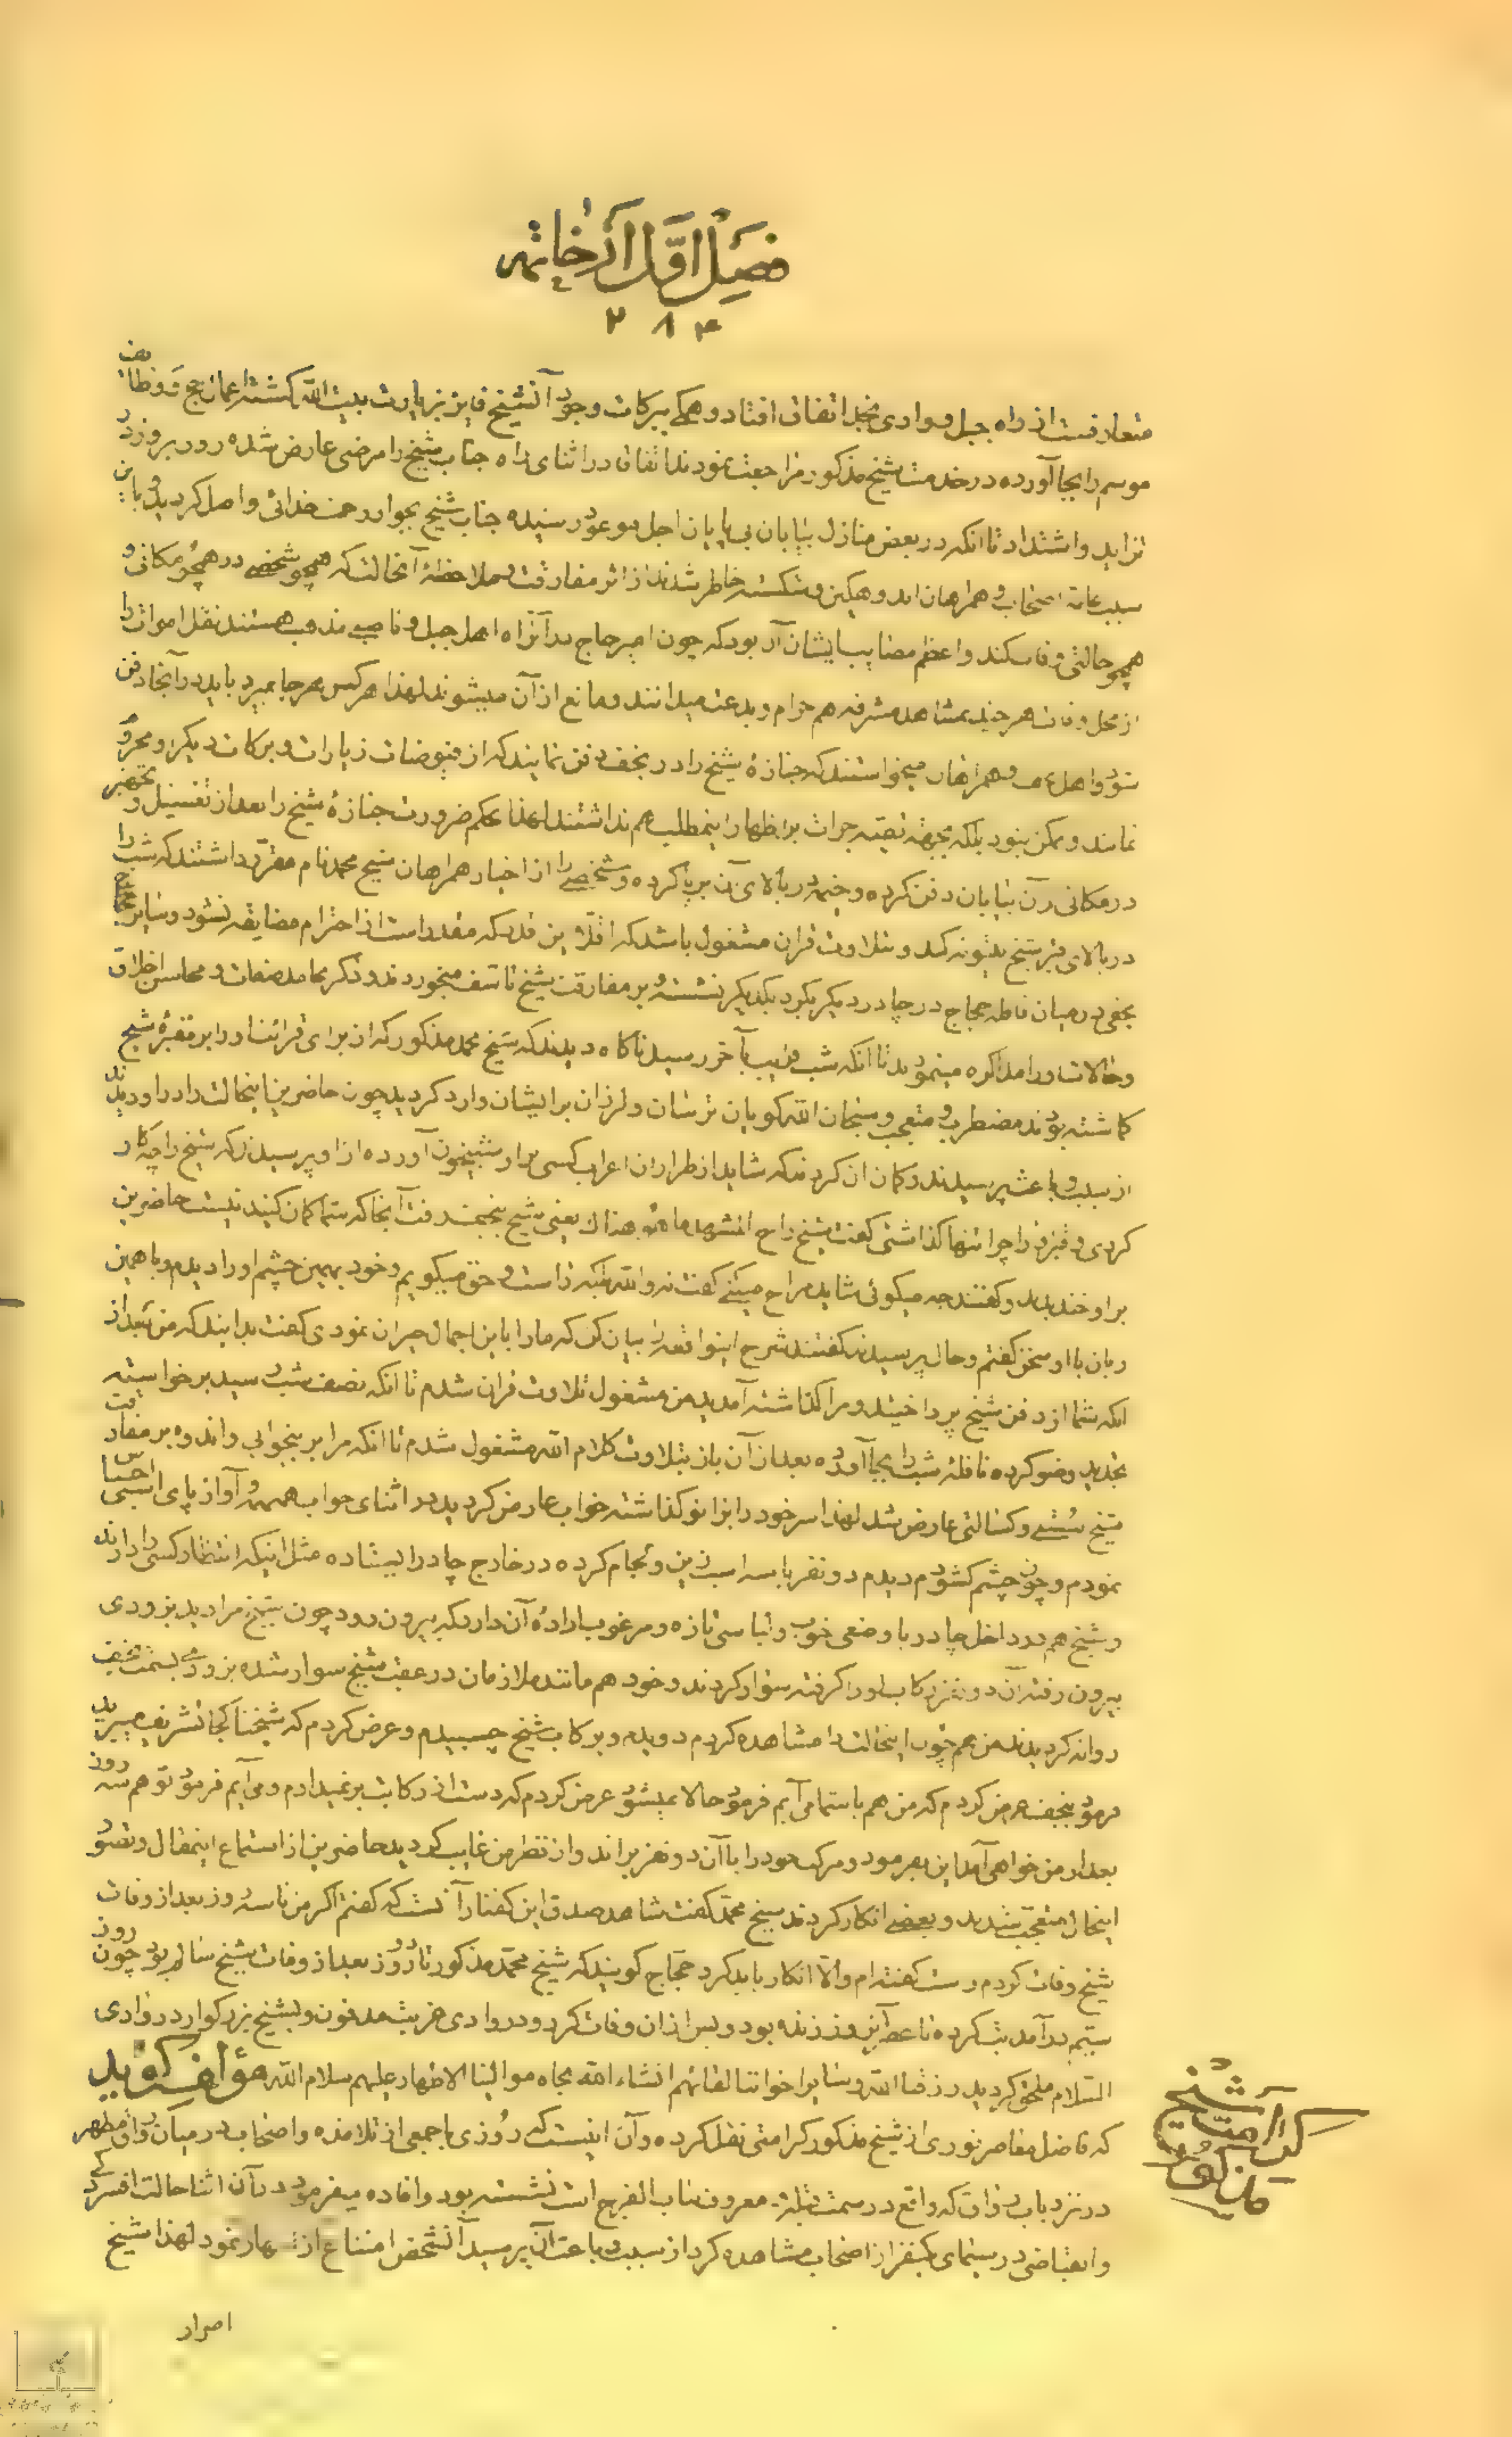 فصل اول از خاتمه
۲۸۴
متعارفست از راه جبل و وادی نجد اتفاق افتاد و همگی ببرکات وجود آنشیخ فایز بزیارت بیت الله گشته اعمال حج و وظایف
موسم را بجا آورده در خدمت شیخ مذکور مراجعت نمودند اتفاقا در اثنای راه جناب شیخ را مرضی عارض شده روز بروز در
تزاید و اشتداد تا انکه در بعض منازل بیابان بی پایان اجل موعود رسیده جناب شیخ بجوار رحمت خدائی واصل گردید و باین
سبب عامه اصحاب و همراهان اندوهگین و شکسته خاطر شدند از اثر مفارقت و ملاحظه آنحالت که همچو شخصی در همچو مکانی و
همچو حالتی وفات کند و اعظم مصایب ایشان آن بود که چون امیر حاج در آنراه اهل جبل و ناصبی مذهب هستند نقل اموات را
از محل وفات هر چند بمشاهد مشرفه هم حرام و بدعت میدانند و مانع از آن میشوند لهذا هر کس هر جا بمیرد باید در آنجا دفن
شود و اهل و همراهان میخواستند که جنازهٔ شیخ را در نجف دفن نمایند که از فیوضات زیارات و برکات دیگر او محروم
نمانند و ممکن نبود بلکه بجهة تقیه جرات بر اظهار اینمطلب هم نداشتند لهذا بحکم ضرورت جنازهٔ شیخ را بعد از تغسیل و تجهیز
در مکانی در آن بیابان دفن کرده و خیمه در بالای آن برپا کرده و شخصی را از اخیار همراهان شیخ محمد نام مقرر داشتند که شب را
در بالای قبر شیخ بیتوته کند و بتلاوت قران مشغول باشد که اقلا این قدر که مقدور است از احترام مضایقه نشود و سایر حجاج
نجفی در میان قافله حجاج در چادر دیگر بگرد یکدیگر نشسته و بر مفارقت شیخ تاسف میخوردند و ذکر محامد صفات و محاسن اخلاق
و حالات او را مذاکره مینمودند تا انکه شب قریب بآخر رسید ناگاه دیدند که شیخ محمد مذکور که از برای قرائت او را بر مقبرهٔ شیخ
گماشته بودند مضطرب و متعجب و سبحان الله گویان ترسان و لرزان بر ایشان وارد گردید چون حاضرین اینحالت را در او دیدند
از سبب و باعث پرسیدند و گمان ان کردند که شاید از طراران اعراب کسی بر او شبیخون آورده از او پرسیدند که شیخ را چه کار
کردی و قبر او را چرا تنها گذاشتی گفت شیخ راح المشهد ما هو هذاک یعنی شیخ بنجف رفت آنجا که شما گمان کنید نیست حاضرین
بر او خندیدند و گفتند چه میگوئی شاید مزاح میکنی گفت نه والله بلکه راست و حق میگویم و خود بهمین چشم او را دیدم و با همین
زبان با او سخن گفتم و حال پرسیدند گفتند شرح اینواقعه را بیان کن که ما را باین اجمال حیران نمودی گفت بدانید که من بعد از
انکه شما از دفن شیخ پرداختید و مرا گذاشته آمدید من مشغول تلاوت قران شدم تا انکه نصف شب رسید برخواسته
تجدید وضو کرده نافله شب را بجا آورده بعد از آن باز بتلاوت کلام الله مشغول شدم تا انکه مرا بر بیخوابی و اندوه بر مفارقت
شیخ سستی و کسالتی عارض شد لهذا سر خود را بزانو گذاشته خواب عارض گردید در اثنای خواب همهمه و آواز پای اسبی احساس
نمودم و چون چشم گشودم دیدم دو نفر با سه اسب زین و لجام کرده در خارج چادر ایستاده مثل اینکه انتظار کسی را دارند
و شیخ هم در داخل چادر با وضعی خوب و لباسی تازه و مرغوب ارادهٔ آن دارد که بیرون رود چون شیخ مرا دید بزودی
بیرون رفته آن دو نفر رکاب او را گرفته سوار کردند و خود هم مانند ملازمان در عقب شیخ سوار شده بزودی بسمت نجف
روانه گردیدند من هم چون اینحالت را مشاهده کردم دویده و بر کاب شیخ چسبیدم و عرض کردم که شیخنا کجا تشریف میبرید
فرمود بنجف عرض کردم که من هم با شما می آیم فرمود حالا نمیشود عرض کردم که دست از رکابت بر نمیدارم و می آیم فرمود تو هم سه روز
بعد از من خواهی آمد این بفرمود و مرکب خود را با آن دو نفر براند و از نظر من غایب گردید حاضرین از استماع اینمقال و تصور
اینحال متعجب شدند و بعضی انکار کردند شیخ محمد گفت شاهد صدق این گفتار آنست که گفتم اگر من تا سه روز بعد از وفات
شیخ وفات کردم راست گفته ام والا انکار باید کرد حجاج گویند که شیخ محمد مذکور تا دو روز بعد از وفات شیخ سالم بود چون روز
سیم در آمد تب کرده تا عصر آنروز زنده بود و پس از ان وفات کرد و در وادی غربت مدفون و بشیخ بزرگوار در وادی
السلام ملحق گردید رزقنا الله و سایر اخواننا لقائهم انشاء الله بجاه موالینا الاطهار علیهم سلام الله مؤلف گوید
که فاضل معاصر نوری از شیخ مذکور کرامتی نقل کرده و آن اینست که روزی با جمعی از تلامذه و اصحاب در میان رواق مطهر
در نزد باب رواق که واقع در سمت قبله معروف بباب الفرج است نشسته بود و افاده میفرمود در آن اثنا حالت افسردگی
و انقباضی در سیمای یکنفر از اصحاب مشاهده کرد از سبب و باعث آن پرسید آنشخص امتناع از اظهار نمود لهذا شیخ
اصرار
کرامت شیخ
مذکور